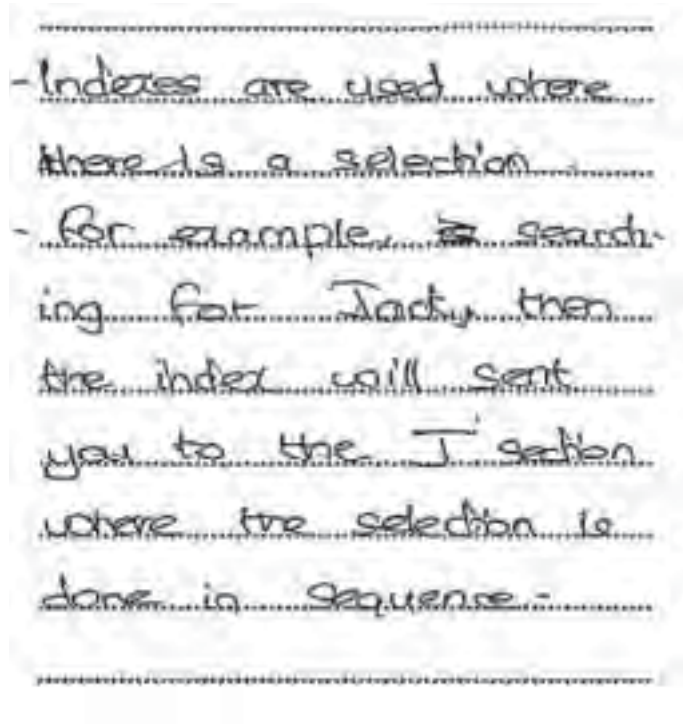 - Indexes are used where
there is a selection.
- For example, search-
ing for Jacky, then
the index will sent
you to the J section
where the selection is
done in sequence.